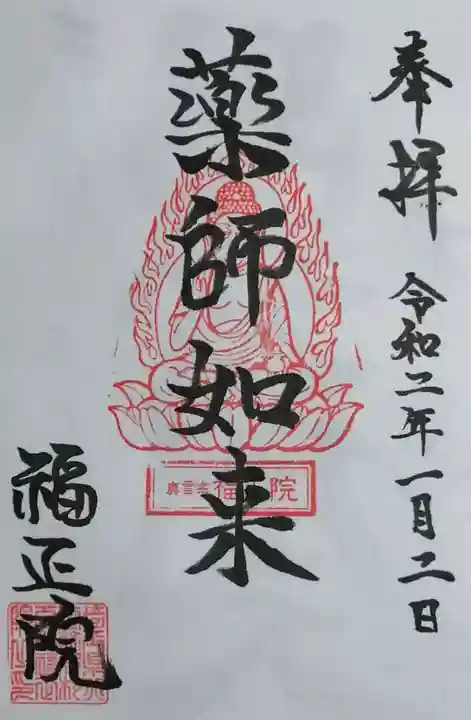 奉拝
令和二年一月二日
薬師如来
真言宗 福 院
福正院